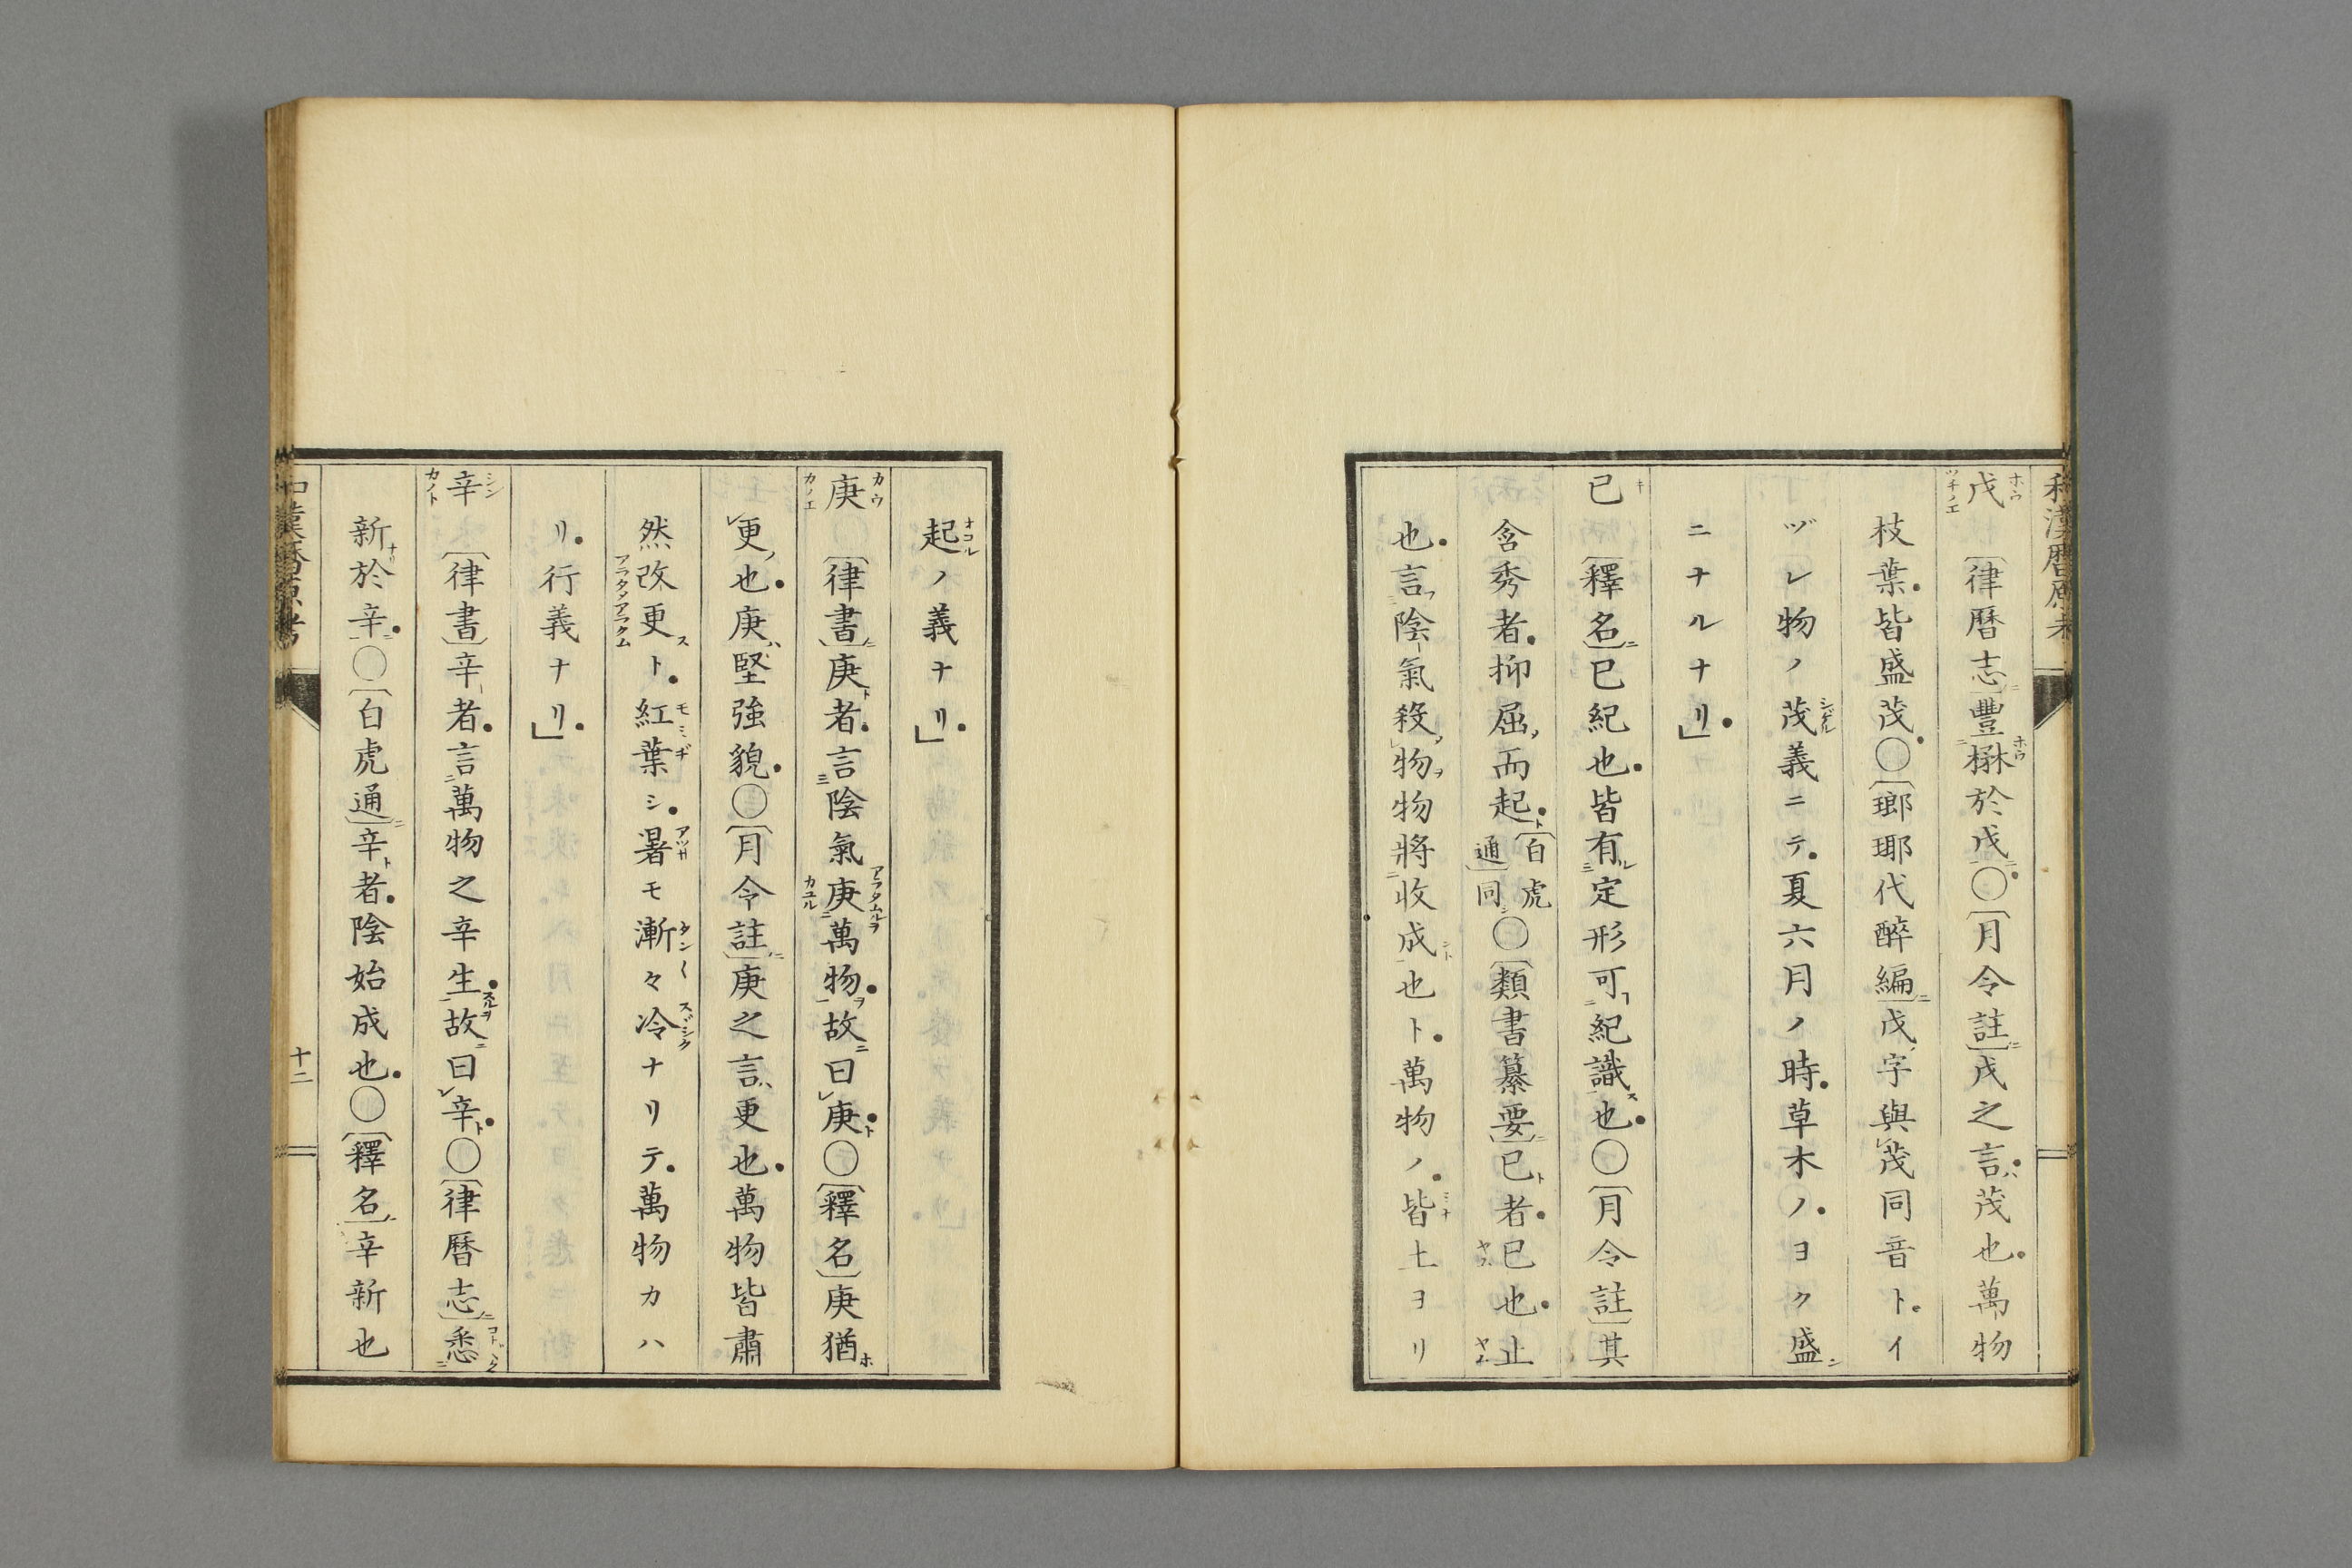 和漢暦原考
戊 〔律暦志〕豐楙於戊〇〔月令註〕戊之言茂也萬物
枝葉皆盛茂〇〔瑯琊代醉編〕戊字與茂同音トイ
ヅレ物ノ茂義ニテ夏六月ノ時草木ノヨク盛
ニナルナリ」
已 〔釋名〕已紀也皆有定形可紀識也〇〔月令註〕其
含秀者抑屈而起〔白虎通〕同〇〔類書纂要〕已者已也止
也言陰氣殺物物將收成也ト萬物ノ皆土ヨリ
起ノ義ナリ」
庚 〔律書〕庚者言陰氣庚萬物故曰庚〇〔釋名〕庚猶
更也庚堅強貌〇〔月令註〕庚之言更也萬物皆肅
然改更ト紅葉シ暑モ漸々冷ナリテ萬物カハ
リ行義ナリ」
辛 〔律書〕辛者言萬物之辛生故曰辛〇〔律暦志〕悉
新於辛〇〔白虎通〕辛者陰始成也〇〔釋名〕辛新也
和漢暦原考
十二